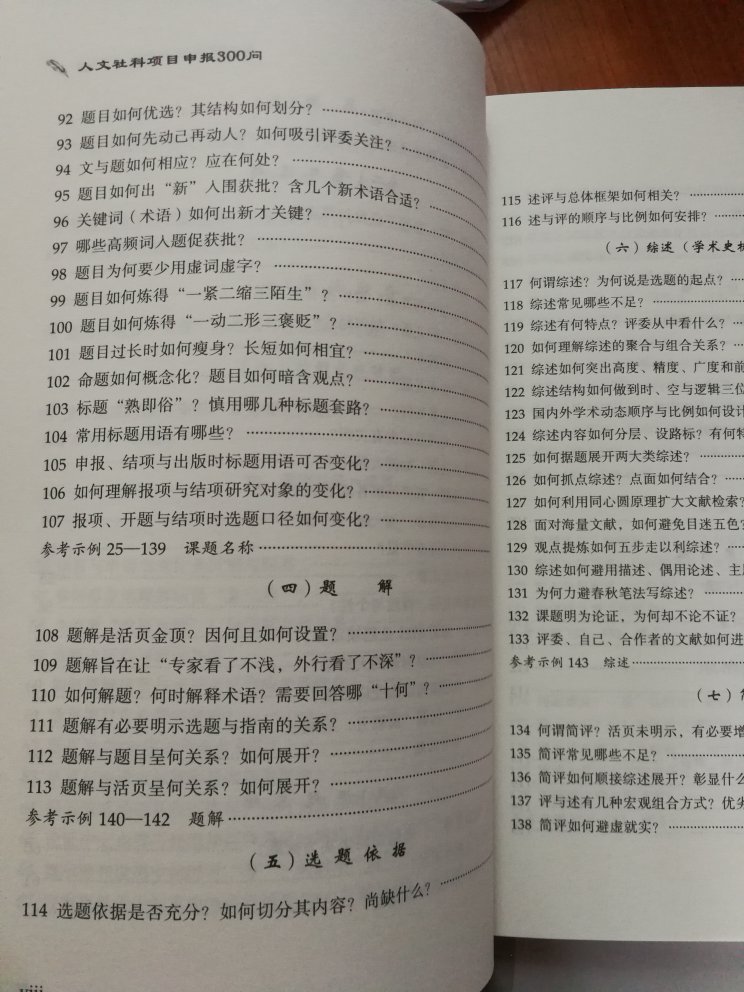 人文社科项目申报300问
92 题目如何优选？其结构如何划分？
93 题目如何先动己再动人？如何吸引评委关注？
94 文与题如何相应？应在何处？
95 题目如何出“新”入围获批？含几个新术语合适？
96 关键词（术语）如何出新才关键？
97 哪些高频词入题促获批？
98 题目为何要少用虚词虚字？
99 题目如何炼得“一紧二缩三陌生”？
100 题目如何炼得“一动二形三褒贬”？
101 题目过长时如何瘦身？长短如何相宜？
102 命题如何概念化？题目如何暗含观点？
103 标题“熟即俗”？慎用哪几种标题套路？
104 常用标题用语有哪些？
105 申报、结项与出版时标题用语可否变化？
106 如何理解报项与结项研究对象的变化？
107 报项、开题与结项时选题口径如何变化？
参考示例 25—139 课题名称
（四）题 解
108 题解是活页金顶？因何且如何设置？
109 题解旨在让“专家看了不浅，外行看了不深”？
110 如何解题？何时解释术语？需要回答哪“十何”？
111 题解有必要明示选题与指南的关系？
112 题解与题目呈何关系？如何展开？
113 题解与活页呈何关系？如何展开？
参考示例 140—142 题解
（五）选题依据
114 选题依据是否充分？如何切分其内容？尚缺什么？
viii
115 述评与总体框架如何相关？
116 述与评的顺序与比例如何安排？
（六）综述（学术史
117 何谓综述？为何说是选题的起点？
118 综述常见哪些不足？
119 综述有何特点？评委从中看什么？
120 如何理解综述的聚合与组合关系？
121 综述如何突出高度、精度、广度和前
122 综述结构如何做到时、空与逻辑三位
123 国内外学术动态顺序与比例如何设计
124 综述内容如何分层、设路标？有何特
125 如何据题展开两大类综述？
126 如何抓点综述？点面如何结合？
127 如何利用同心圆原理扩大文献检索？
128 面对海量文献，如何避免目迷五色？
129 观点提炼如何五步走以利综述？
130 综述如何避用描述、偶用论述、主
131 为何力避春秋笔法写综述？
132 课题明为论证，为何却不论不证？
133 评委、自己、合作者的文献如何进
参考示例 143 综述
（七）
134 何谓简评？活页未明示，有必要增
135 简评常见哪些不足？
136 简评如何顺接综述展开？彰显什么
137 评与述有几种宏观组合方式？优劣
138 简评如何避虚就实？